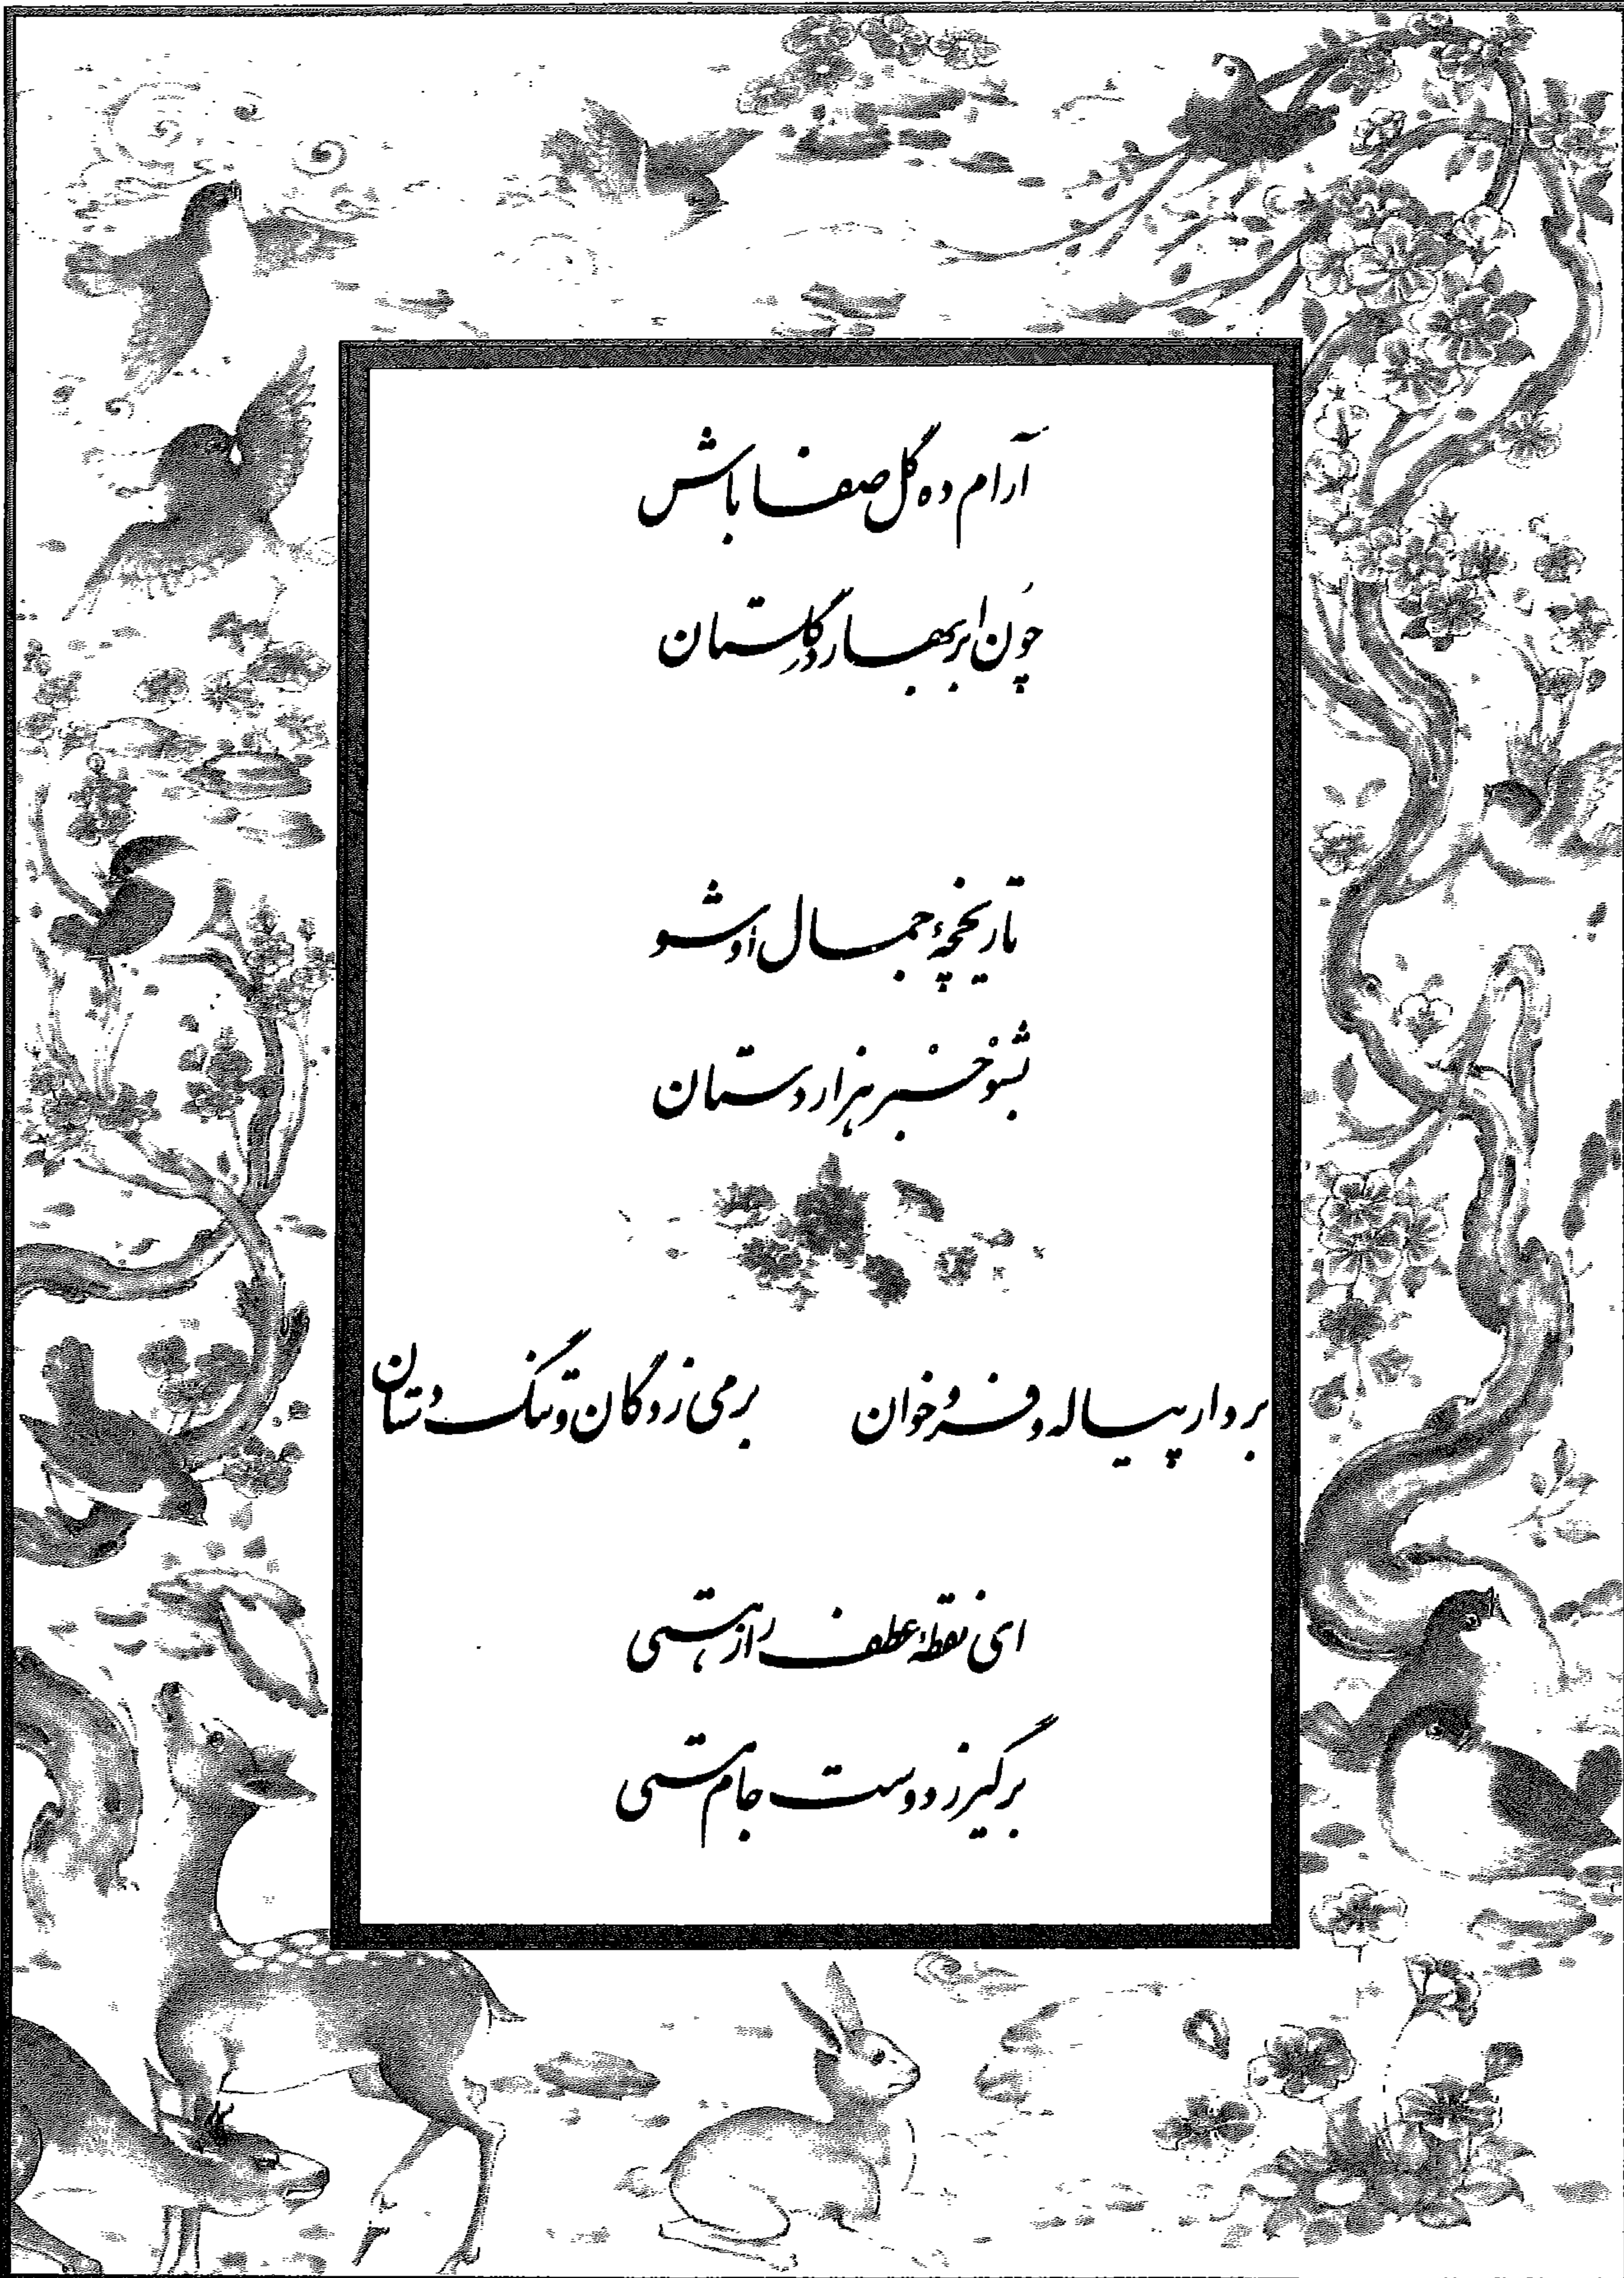 آرام ده گل صفا باش
چون ابر بهار در گلستان
تاریخچهٔ جمال او شو
بشنو خبر هزار دستان
بردار پیاله و فرو خوان
بر می‌زدگان و تنگ‌دستان
ای نقطهٔ عطف راز هستی
برگیر ز دوست جام مستی